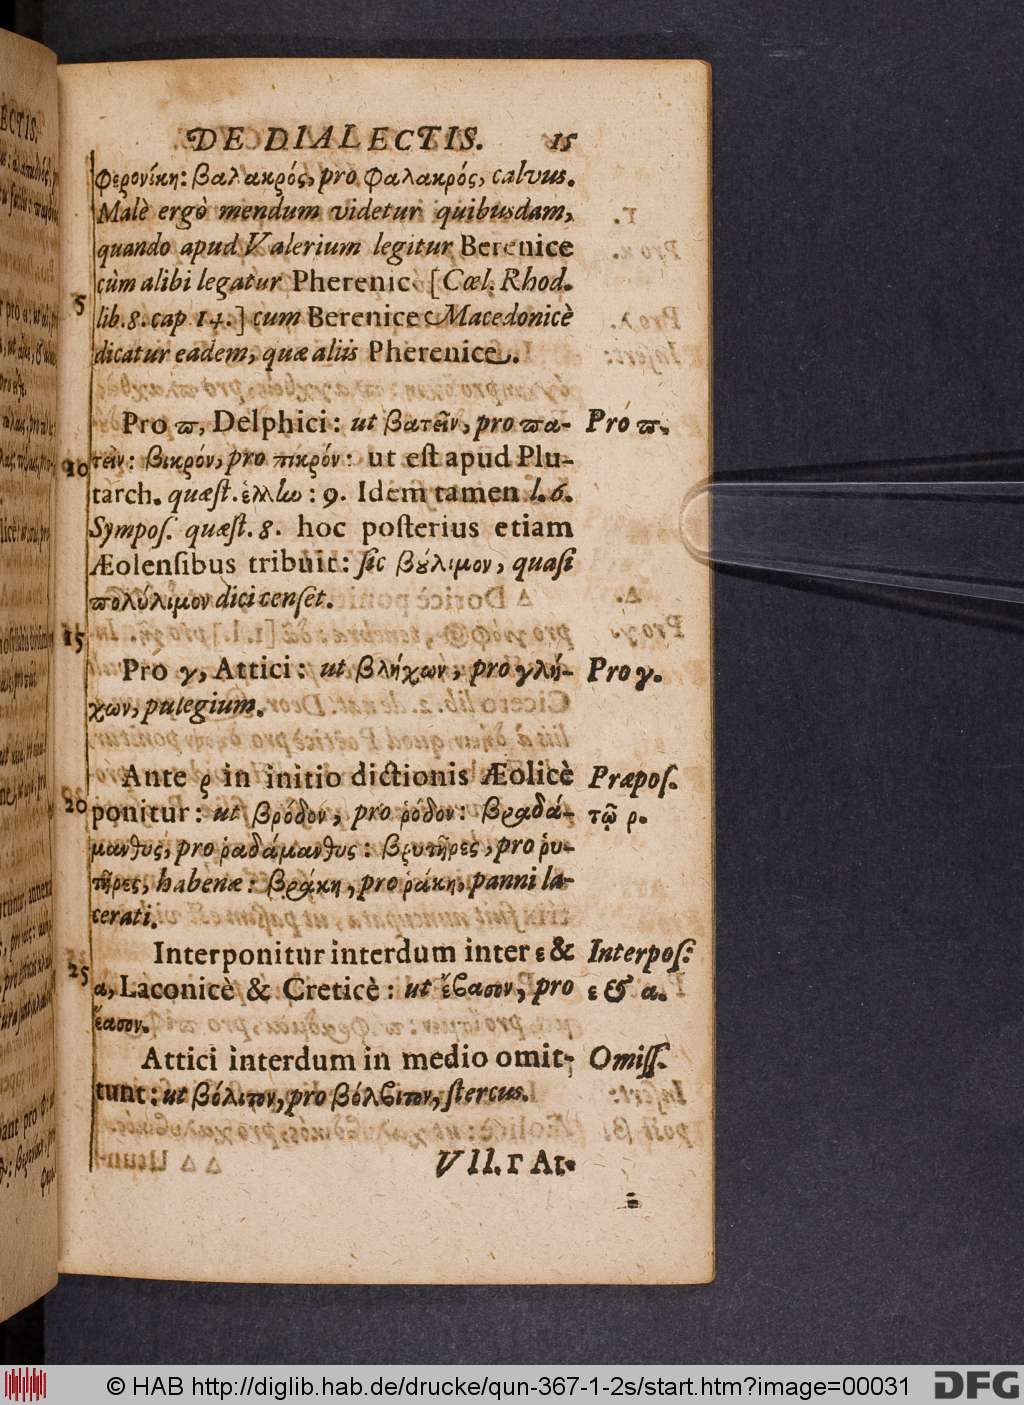 DE DIALECTIS. 15
φερονίκη: βαλακρός, pro φαλακρός, calvus.
Malè ergò mendum videtur quibusdam,
quando apud Valerium legitur Berenice
cùm alibi legatur Pherenic [Cœl. Rhod.
5 lib. 8. cap 14.] cum Berenice Macedonicè
dicatur eadem, quæ aliis Pherenice.
Pro ϖ, Delphici: ut βατεῖν, pro ϖα- Pro ϖ.
10 τεῖν: βικρόν, pro πικρόν: ut est apud Plu-
tarch. quæst. ἑλλω: 9. Idem tamen l. 6.
Sympos. quæst. 8. hoc posterius etiam
Æolensibus tribuit: sic βȣ́λιμον, quasi
ϖολύλιμον dici censet.
15
Pro γ, Attici: ut βλήχων, pro γλή- Pro γ.
χων, pulegium.
Ante ρ in initio dictionis Æolicè Præpos.
20 ponitur: ut βρόδον, pro ῥόδον: βραδά- τῷ ρ.
μανθυς, pro ῥαδάμανθυς: βρυτῆρες, pro ῥυ-
τῆρες, habenæ: βράκη, pro ῥάκη, panni la-
cerati.
Interponitur interdum inter ε & Interpos:
25 α, Laconicè & Creticè: ut ἔβασον, pro ε & α.
ἔασον.
Attici interdum in medio omit- Omiss.
tunt: ut βόλιτον, pro βόλβιτον, stercus.
VII. Γ At.
© HAB http://diglib.hab.de/drucke/qun-367-1-2s/start.htm?image=00031 DFG